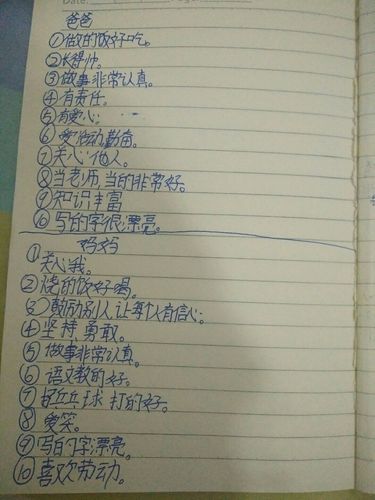 Date:
爸爸
①做的饭好吃。
②长得帅。
③做事非常认真。
④有责任。
⑤有爱心;
⑥爱活动,勤奋。
⑦关心他人。
⑧当老师,当的非常好。
⑨知识丰富
⑩写的字很漂亮。
妈妈
①关心我。
②烧的饭好喝。
③鼓励别人,让每个人有信心;
④坚持,勇敢。
⑤做事非常认真。
⑥语文教的好。
⑦把乒乓球打的好。
⑧爱笑。
⑨写的字漂亮。
⑩喜欢劳动。